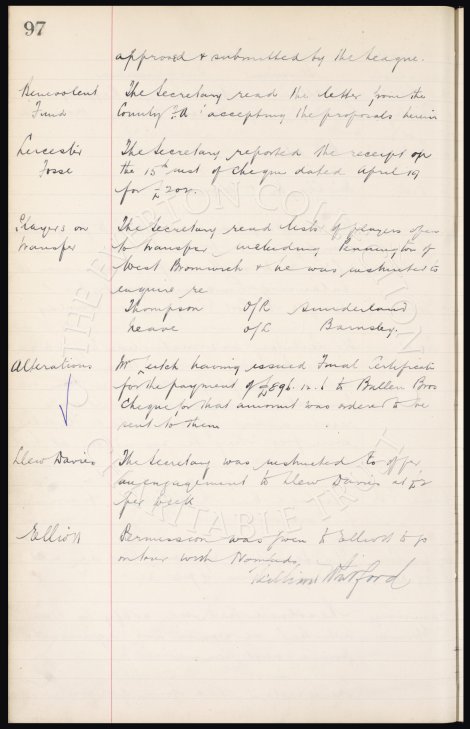 97
approved & submitted by the League.
Benevolent Fund
The Secretary read the letter from the
County F.A. accepting the proposals herein
Leicester Fosse
The Secretary reported the receipt on
the 15th inst of cheque dated April 19
for £200.
Players on transfer
The Secretary read lists of players open
to transfer including Pennington of
West Bromwich & he was instructed to
enquire re
Thompson O/R Sunderland
Leave O/L Barnsley.
Alterations
Mr having issued Final Certificate
for the payment of £896.12.6 to Bullen Bros
cheque for that amount was ordered to be
sent to them
Llew Davies
The Secretary was instructed to offer
an engagement to Llew Davies at £2
per week
Elliott
Permission was given to Elliott to go
on tour with
William
THE EVERTON COLLECTION
CHARITABLE TRUST